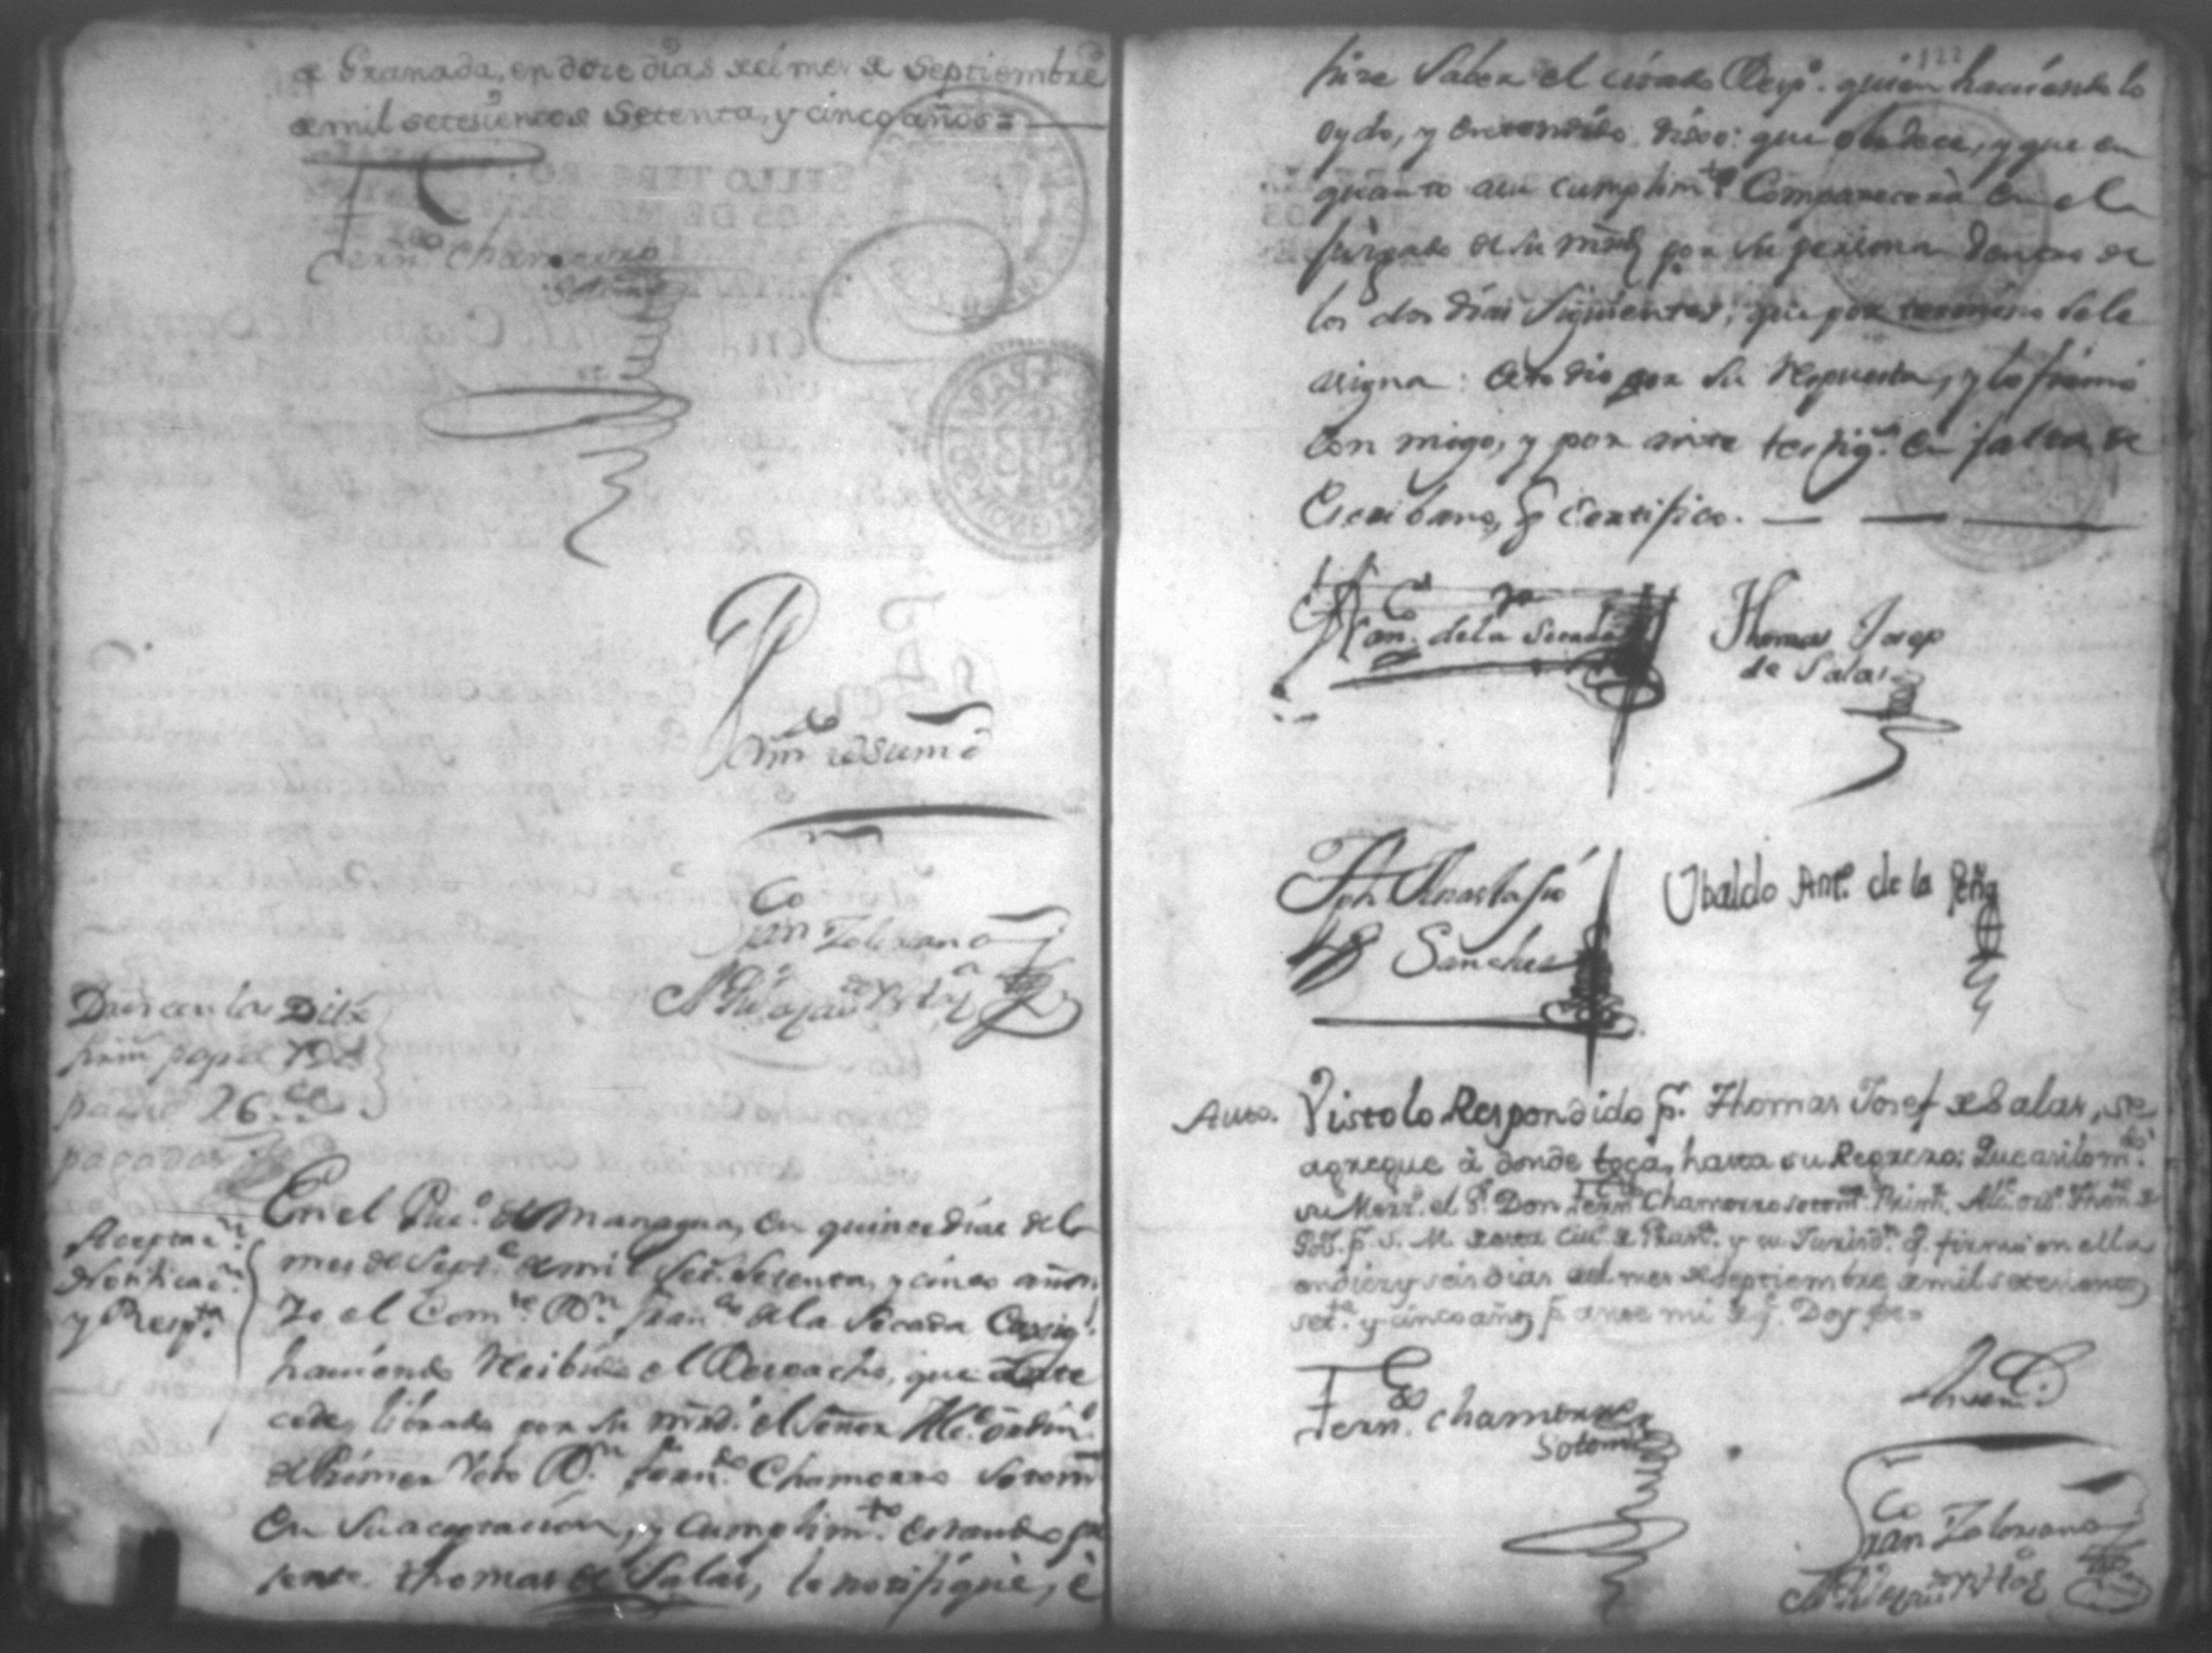 de Granada, en doze dias del mes de Septiembre
de mil setesientos Setenta, y cinco años =
Fern.do Chamorro
Por m.do de su m.d
Co
Fran Zolorzano
Dros con los Dilix
papel
26
pagados
En el Pue.o de Managua, en quince dias del
mes de Sept.e de mil Set.s Setenta, y cinco años.
Yo el Com.te D.n Fran.co de la Secada
haviendo Recibido el Despacho, que Ante
cede, librado por su mrd. el Señor Alc.e ordin.o
de Primer Voto D.n Fern.do Chamorro Sotom.r
En su aceptacion, y cumplim.to estando pre
sente Thomas de Salas, le notifiqué, è
Aceptac.n
Notificac.n
y Resp.ta
122
hize Saber el citado Desp.o quien haviendolo
oydo, y entendido, dixo: que obedece, y que en
quanto a su cumplim.to Comparecerà en el
Juzgado de su Mrd por su persona dentro de
los dos dias Siguientes, que por termino se le
asigna: esto dio por su Respuesta, y lo firmò
Con migo, y por ante testig.s en falta de
Escribano, q Certifico.
Fran.co de la Secada
Thomas Josep
de Salas
Jph. Anastasio
Sanches
Ubaldo Ant.o de la Peña
Auto. Visto lo Respondido p.r Thomas Josef de Salas, se
agregue à donde toca, hasta su Regrezo: Que asi lo m.do
su Merz.d el S.r Don Fern.do Chamorro Sotom.r Prim.r Alc.e ord.o
p.r S. M. de esta Ciu.d de Gran.da y su Jurisd.n q. firmò en ella
en diez y seis dias del mes de Septiembre de mil setesientos
set.ta y cinco años p.r ante mi de q.e Doy fe =
Fern.do Chamorro
Sotom.r
Ante mi.
Co
Fran Zolorzano